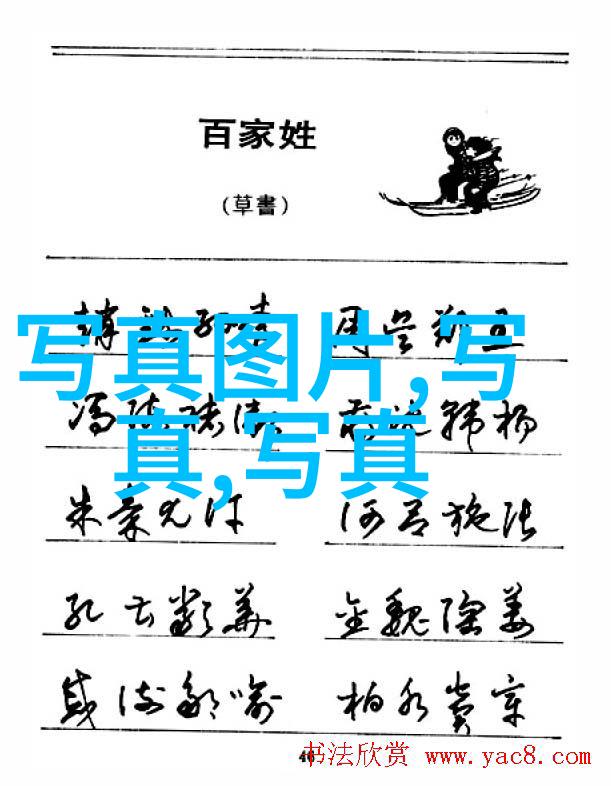 百家姓
(草書)
趙錢孫李 周吳鄭王
写真图片,写
真,写真
馮陳褚衛 蔣沈韓楊
朱秦尤許 何呂施張
孔曹嚴華 金魏陶姜
戚謝鄒喻 柏水竇章
46
书法欣赏 www.yac8.com